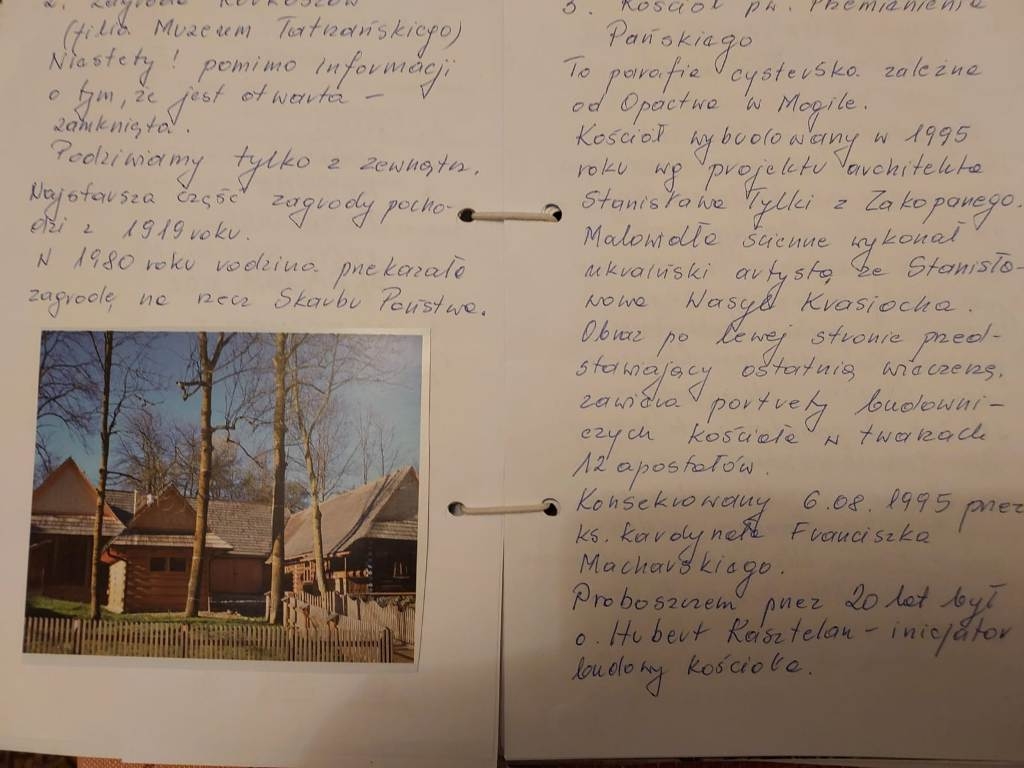 2. Zagroda Korkoszów
(filia Muzeum Tatrzańskiego)
Niestety! pomimo informacji
o tym, że jest otwarta –
zamknięta.
Podziwiamy tylko z zewnątrz.
Najstarsza część zagrody pocho-
dzi z 1919 roku.
W 1980 roku rodzina przekazała
zagrodę na rzecz Skarbu Państwa.
3. Kościół pw. Przemienienia
Pańskiego
To parafia cysterska zależna
od Opactwa w Mogile.
Kościół wybudowany w 1995
roku wg projektu architekta
Stanisława Tylki z Zakopanego.
Malowidła ścienne wykonał
ukraiński artysta ze Stanisła-
wowa Wasyl Krasiocha.
Obraz po lewej stronie przed-
stawiający ostatnią wieczerzę,
zawiera portrety budowni-
czych kościoła w twarzach
12 apostołów.
Konsekrowany 6.08.1995 przez
ks. kardynała Franciszka
Macharskiego.
Proboszczem przez 20 lat był
o. Hubert Kasztelan – inicjator
budowy kościoła.